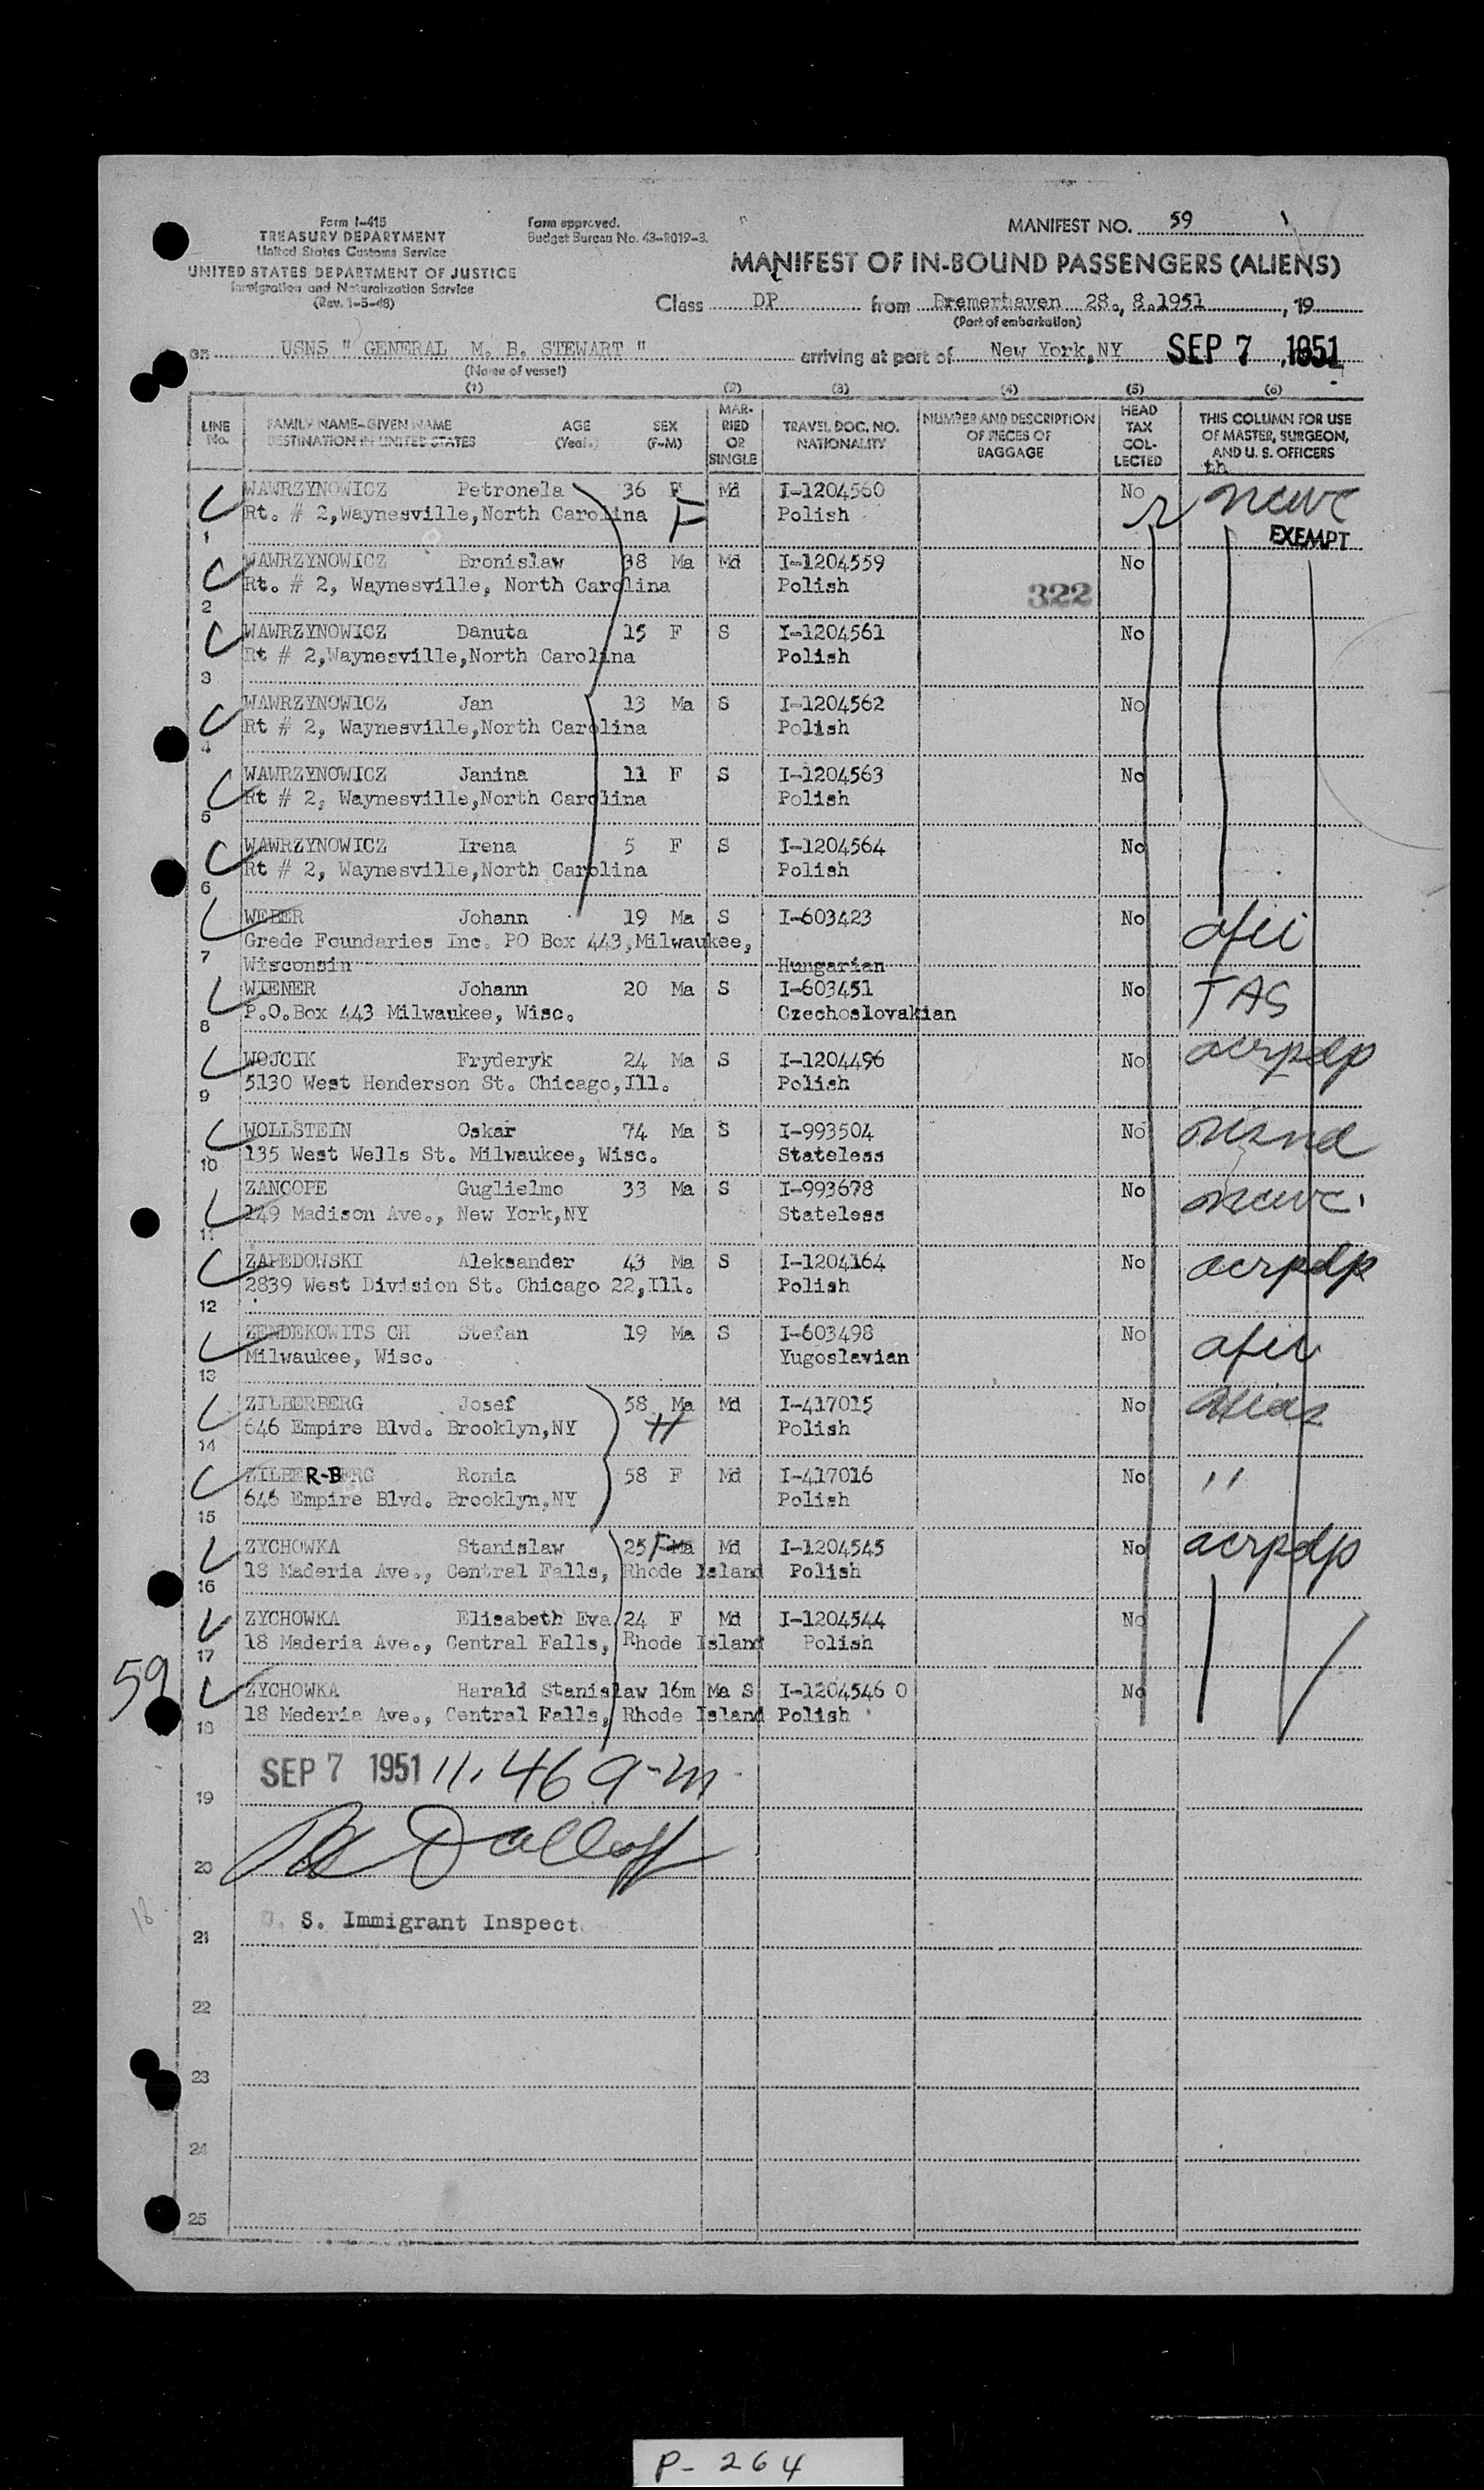 Form I-415
TREASURY DEPARTMENT
United States Customs Service
UNITED STATES DEPARTMENT OF JUSTICE
Immigration and Naturalization Service
(Rev. 1-5-48)
Form approved.
Budget Bureau No. 43-R019-3.
MANIFEST NO. 59
MANIFEST OF IN-BOUND PASSENGERS (ALIENS)
Class DP from Bremerhaven 28., 8.1951, 19
(Port of embarkation)
on USNS " GENERAL M. B. STEWART " arriving at port of New York,NY SEP 7 ,1951
(Name of vessel)
(1) (2) (3) (4) (5) (6)
LINE No. FAMILY NAME-GIVEN NAME DESTINATION IN UNITED STATES AGE (Years) SEX (F-M) MARRIED OR SINGLE TRAVEL DOC. NO. NATIONALITY NUMBER AND DESCRIPTION OF PIECES OF BAGGAGE HEAD TAX COLLECTED THIS COLUMN FOR USE OF MASTER, SURGEON, AND U. S. OFFICERS
WAWRZYNOWICZ Petronela 36 F Md I-1204560 No ncwc
Rt. # 2,Waynesville,North Carolina F Polish
1 EXEMPT
WAWRZYNOWICZ Bronislaw 38 Ma Md I-1204559 No
Rt. # 2, Waynesville, North Carolina Polish 322
2
WAWRZYNOWICZ Danuta 15 F S I-1204561 No
Rt # 2,Waynesville,North Carolina Polish
3
WAWRZYNOWICZ Jan 13 Ma S I-1204562 No
Rt # 2, Waynesville,North Carolina Polish
4
WAWRZYNOWICZ Janina 11 F S I-1204563 No
Rt # 2, Waynesville,North Carolina Polish
5
WAWRZYNOWICZ Irena 5 F S I-1204564 No
Rt # 2, Waynesville,North Carolina Polish
6
WEBER Johann 19 Ma S I-603423 No
Grede Foundaries Inc. PO Box 443,Milwaukee,
7 Wisconsin Hungarian
WIENER Johann 20 Ma S I-603451 No TAS
P.O.Box 443 Milwaukee, Wisc. Czechoslovakian
8
WOJCIK Fryderyk 24 Ma S I-1204496 No acrpdp
5130 West Henderson St. Chicago,Ill. Polish
9
WOLLSTEIN Oskar 74 Ma S I-993504 No
135 West Wells St. Milwaukee, Wisc. Stateless
10
ZANCOPE Guglielmo 33 Ma S I-993678 No ncwc
149 Madison Ave., New York,NY Stateless
11
ZAPEDOWSKI Aleksander 43 Ma S I-1204164 No acrpdp
2839 West Division St. Chicago 22,Ill. Polish
12
ZENDEKOWITS CH Stefan 19 Ma S I-603498 No
Milwaukee, Wisc. Yugoslavian
13
ZILBERBERG Josef 58 Ma Md I-417015 No
646 Empire Blvd. Brooklyn,NY H Polish
14
ZILBER-BERG Ronia 58 F Md I-417016 No "
646 Empire Blvd. Brooklyn,NY Polish
15
ZYCHOWKA Stanislaw 25 F Ma Md I-1204545 No acrpdp
18 Maderia Ave., Central Falls, Rhode Island Polish
16
ZYCHOWKA Elisabeth Eva 24 F Md I-1204544 No
18 Maderia Ave., Central Falls, Rhode Island Polish
17
59
ZYCHOWKA Harald Stanislaw 16m Ma S I-1204546 0 No
18 Mederia Ave., Central Falls, Rhode Island Polish
18
SEP 7 1951 11.46 a-m.
19
20
S. Immigrant Inspect
21
22
23
24
25
P- 264